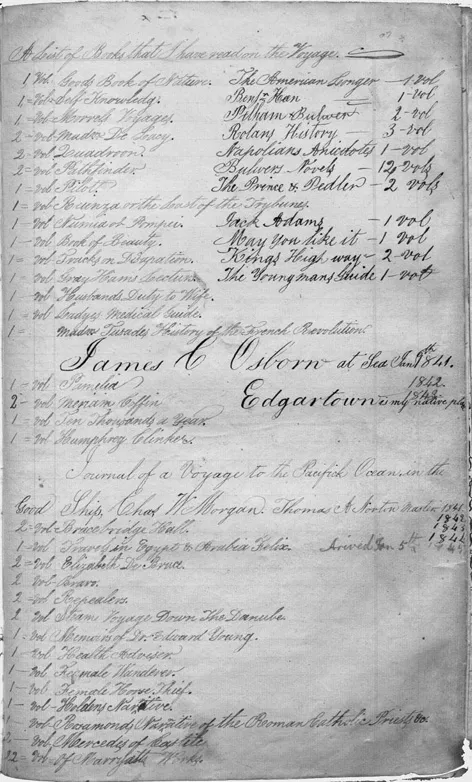 A List of Books that I have read on the Voyage.
1 Vol Goods Book of Nature. The American Lounger – 1 vol
1 – Vol – Self Knowledg. Benj Han – 1 – vol
1 – vol – Morrels Voyages. Pelham Bulwer 2 – vol
2 – vol – Madm De Lacy. Rolans History – 3 – vol
2 – vol Quadroon. Napolians Anicdotes 1 – vol
2 – vol – Pathfinder. Bulwers Novels – 12 vols
1 – vol – Pilot. The Prence & Pedler – 2 vols
1 – vol – Rienza or the last of the Trybunes.
1 – vol Numia of Pompei. Jack Adams – 1 vol
1 – vol – Book of Beauty. May You like it – 1 vol
1 – vol – Trucks in Disration. Kings High way – 2 – vol
1 – vol – Gray Hams The Youngmans Guide 1 – vol
1 – vol Husbands Duty to Wife.
1 – vol – Ladys Medical Guide.
1 – Madm Tusades History of the French Revolution.
James C Osborn at Sea Jan 9th 1841.
1842
1 – vol Pamelia 1843
2 – vol Meriam Coffin Edgartown is my native place
1 – vol Ten Thousands a Year.
1 – vol Humphrey Clinker.
Journal of a Voyage to the Pacifick Ocean, in the
Good Ship, Chas W Morgan. Thomas A Norton Master 1841
1842
2 – vol Bracebridge Hall. 1843
1 – vol – Travels in Egypt & Arabia Felix. Arived Jan 5th 1844
2 = vol Elizabeth De Bruce.
2 vol – Bravo.
2 – vol – Repealers.
2 vol – Steam Voyage Down The Danube.
1 = vol Memoirs of Dr. Edward Young.
1 – vol – Health Advisor.
1 – vol – Feemale Wanderer.
1 – vol – Female Horse Thief.
1 – vol – Holdens Narative.
vol – Rosamonds Narative of the Roman Catholic Priests &c.
2 – vol – Mercedes of Castile.
22 – vol – of Marryatts Works.